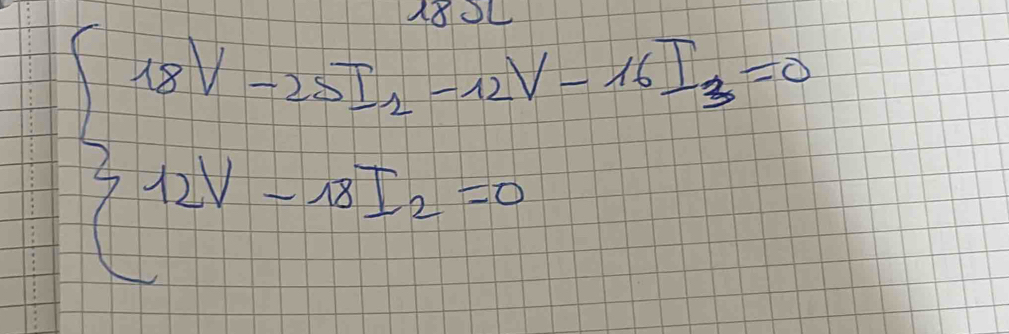 18Ω
18V - 25I₂ - 12V - 16I₃ = 0
12V - 18I₂ = 0